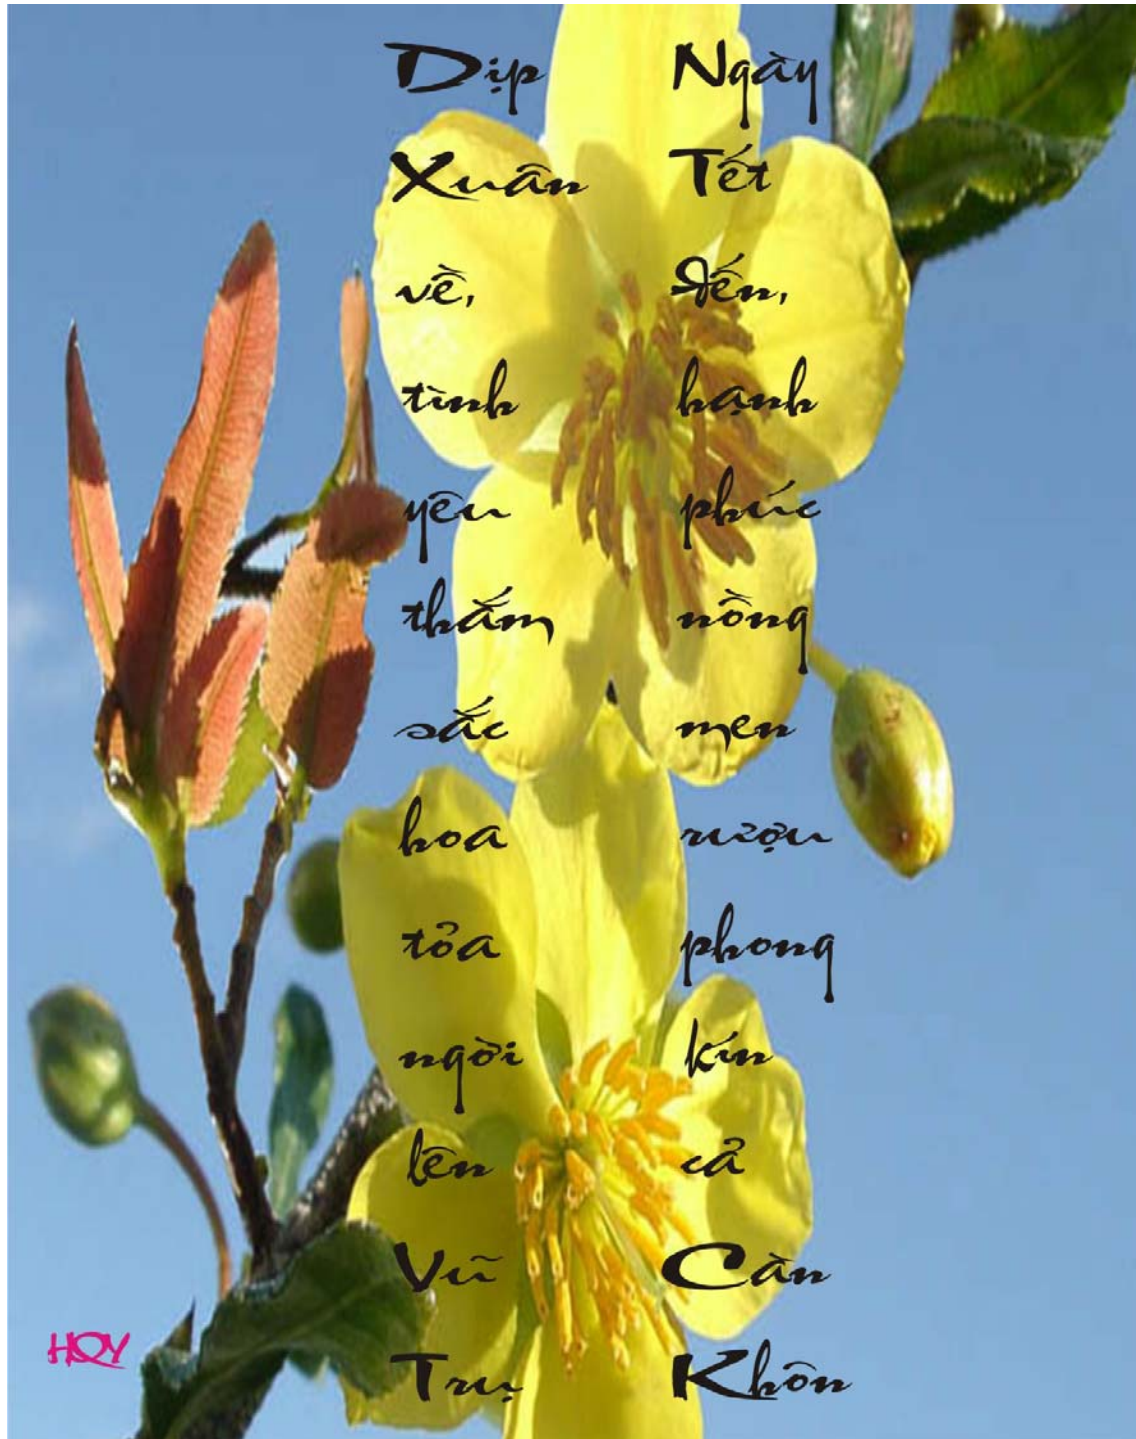 Dịp
Xuân
về,
tình
yêu
thắm
sắc
hoa
tỏa
ngời
lên
Vũ
Trụ
Ngày
Tết
đến,
hạnh
phúc
nồng
men
rượu
phong
kín
cả
Càn
Khôn
HQY